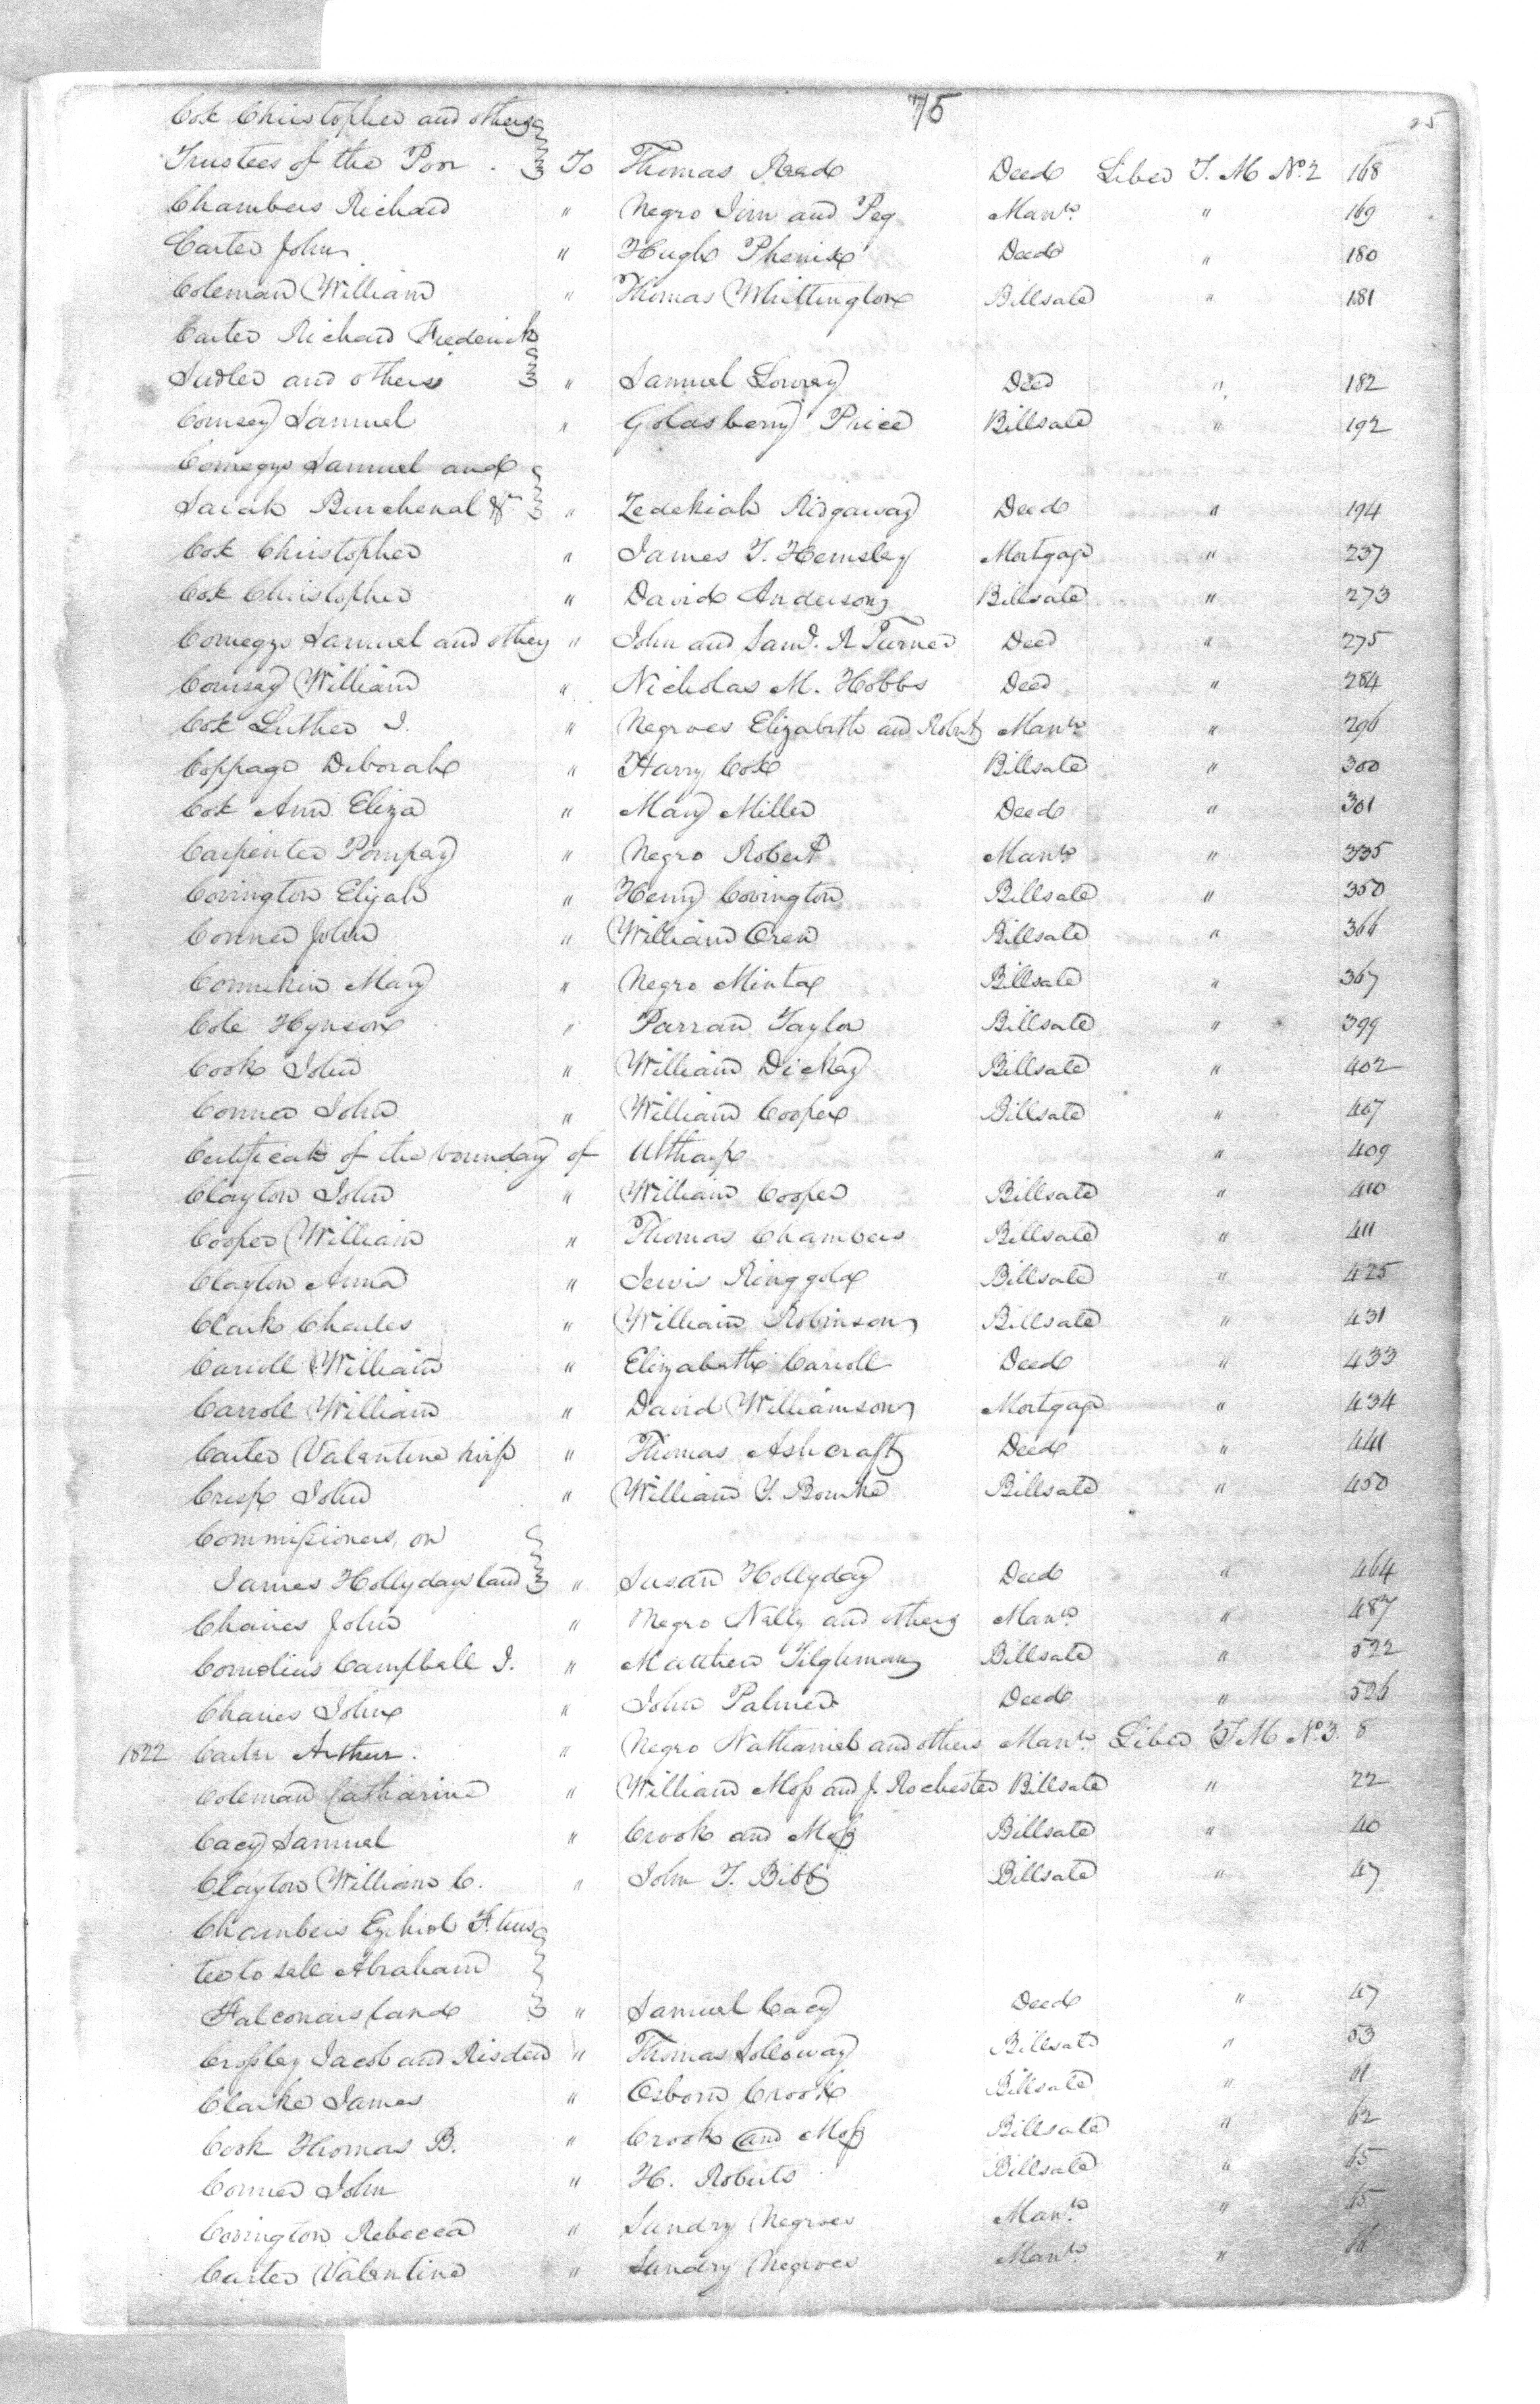 75
Cox Christopher and others
Trustees of the Poor . To Thomas Read Deed Liber T. M No. 2 168
Chambers Richard " Negro Jim and Peg Mann. " 169
Carter John " Hugh Phenix Deed " 180
Coleman William " Thomas Whittington Billsale " 181
Carter Richard Frederick
Sudler and others " Samuel Lowrey Deed " 182
Comsey Samuel " Goldsberry Price Billsale " 192
Comegys Samuel and
Sarah Burchenal " Zedekiah Ridgaway Deed " 194
Cox Christopher " James T. Hemsley Mortgage " 237
Cox Christopher " David Anderson Billsale " 273
Comegys Samuel and others " John and Saml. R Turner Deed " 275
Comsey William " Nicholas M. Hobbs Deed " 284
Cox Luther J. " Negroes Elizabeth and Robert Mann. " 296
Coppage Deborah " Harry Cox Billsale " 300
Cox Ann Eliza " Mary Miller Deed " 301
Carpenter Pompey " Negro Robert Mann. " 335
Covington Elijah " Henry Covington Billsale " 350
Conner John " William Crew Billsale " 366
Connikin Mary " Negro Minta Billsale " 367
Cole Hynson " Parran Taylor Billsale " 399
Cook John " William Dickey Billsale " 402
Conner John " William Cooper Billsale " 407
Certificate of the boundary of Ulthorp " 409
Clayton John " William Cooper Billsale " 410
Cooper William " Thomas Chambers Billsale " 411
Clayton Anna " Lewis Ringgold Billsale " 425
Clark Charles " William Robinson Billsale " 431
Carroll William " Elizabeth Carroll Deed " 433
Carroll William " David Williamson Mortgage " 434
Carter Valentine " Thomas Ashcraft Deed " 441
Crisp John " William Y. Bourke Billsale " 450
Commissioners, on
James Hollydays land " Susan Hollyday Deed " 464
Chaires John " Negro Nelly and others Mann. " 487
Cornelius Campbell J. " Matthew Tilghman Billsale " 522
Chaires John " John Palmer Deed " 526
1822 Carter Arthur. " Negro Nathaniel and others Mann. Liber T M No. 3. 8
Coleman Catharine " William Moss and J. Rochester Billsale " 22
Cacy Samuel " Crook and Moss Billsale " 40
Clayton William C. " John T. Bibby Billsale " 47
Chambers Ezekiel F. trus
tee to sell Abraham
Falconars land " Samuel Cacy Deed " 47
Crossley Jacob and Risden " Thomas Solloway Billsale " 53
Clarke James " Osborn Crook Billsale " 61
Cook Thomas B. " Crook and Moss Billsale " 62
Conner John " H. Roberts Billsale " 65
Covington Rebecca " Sundry Negroes Mann. " 65
Carter Valentine " Sundry Negroes Mann. "